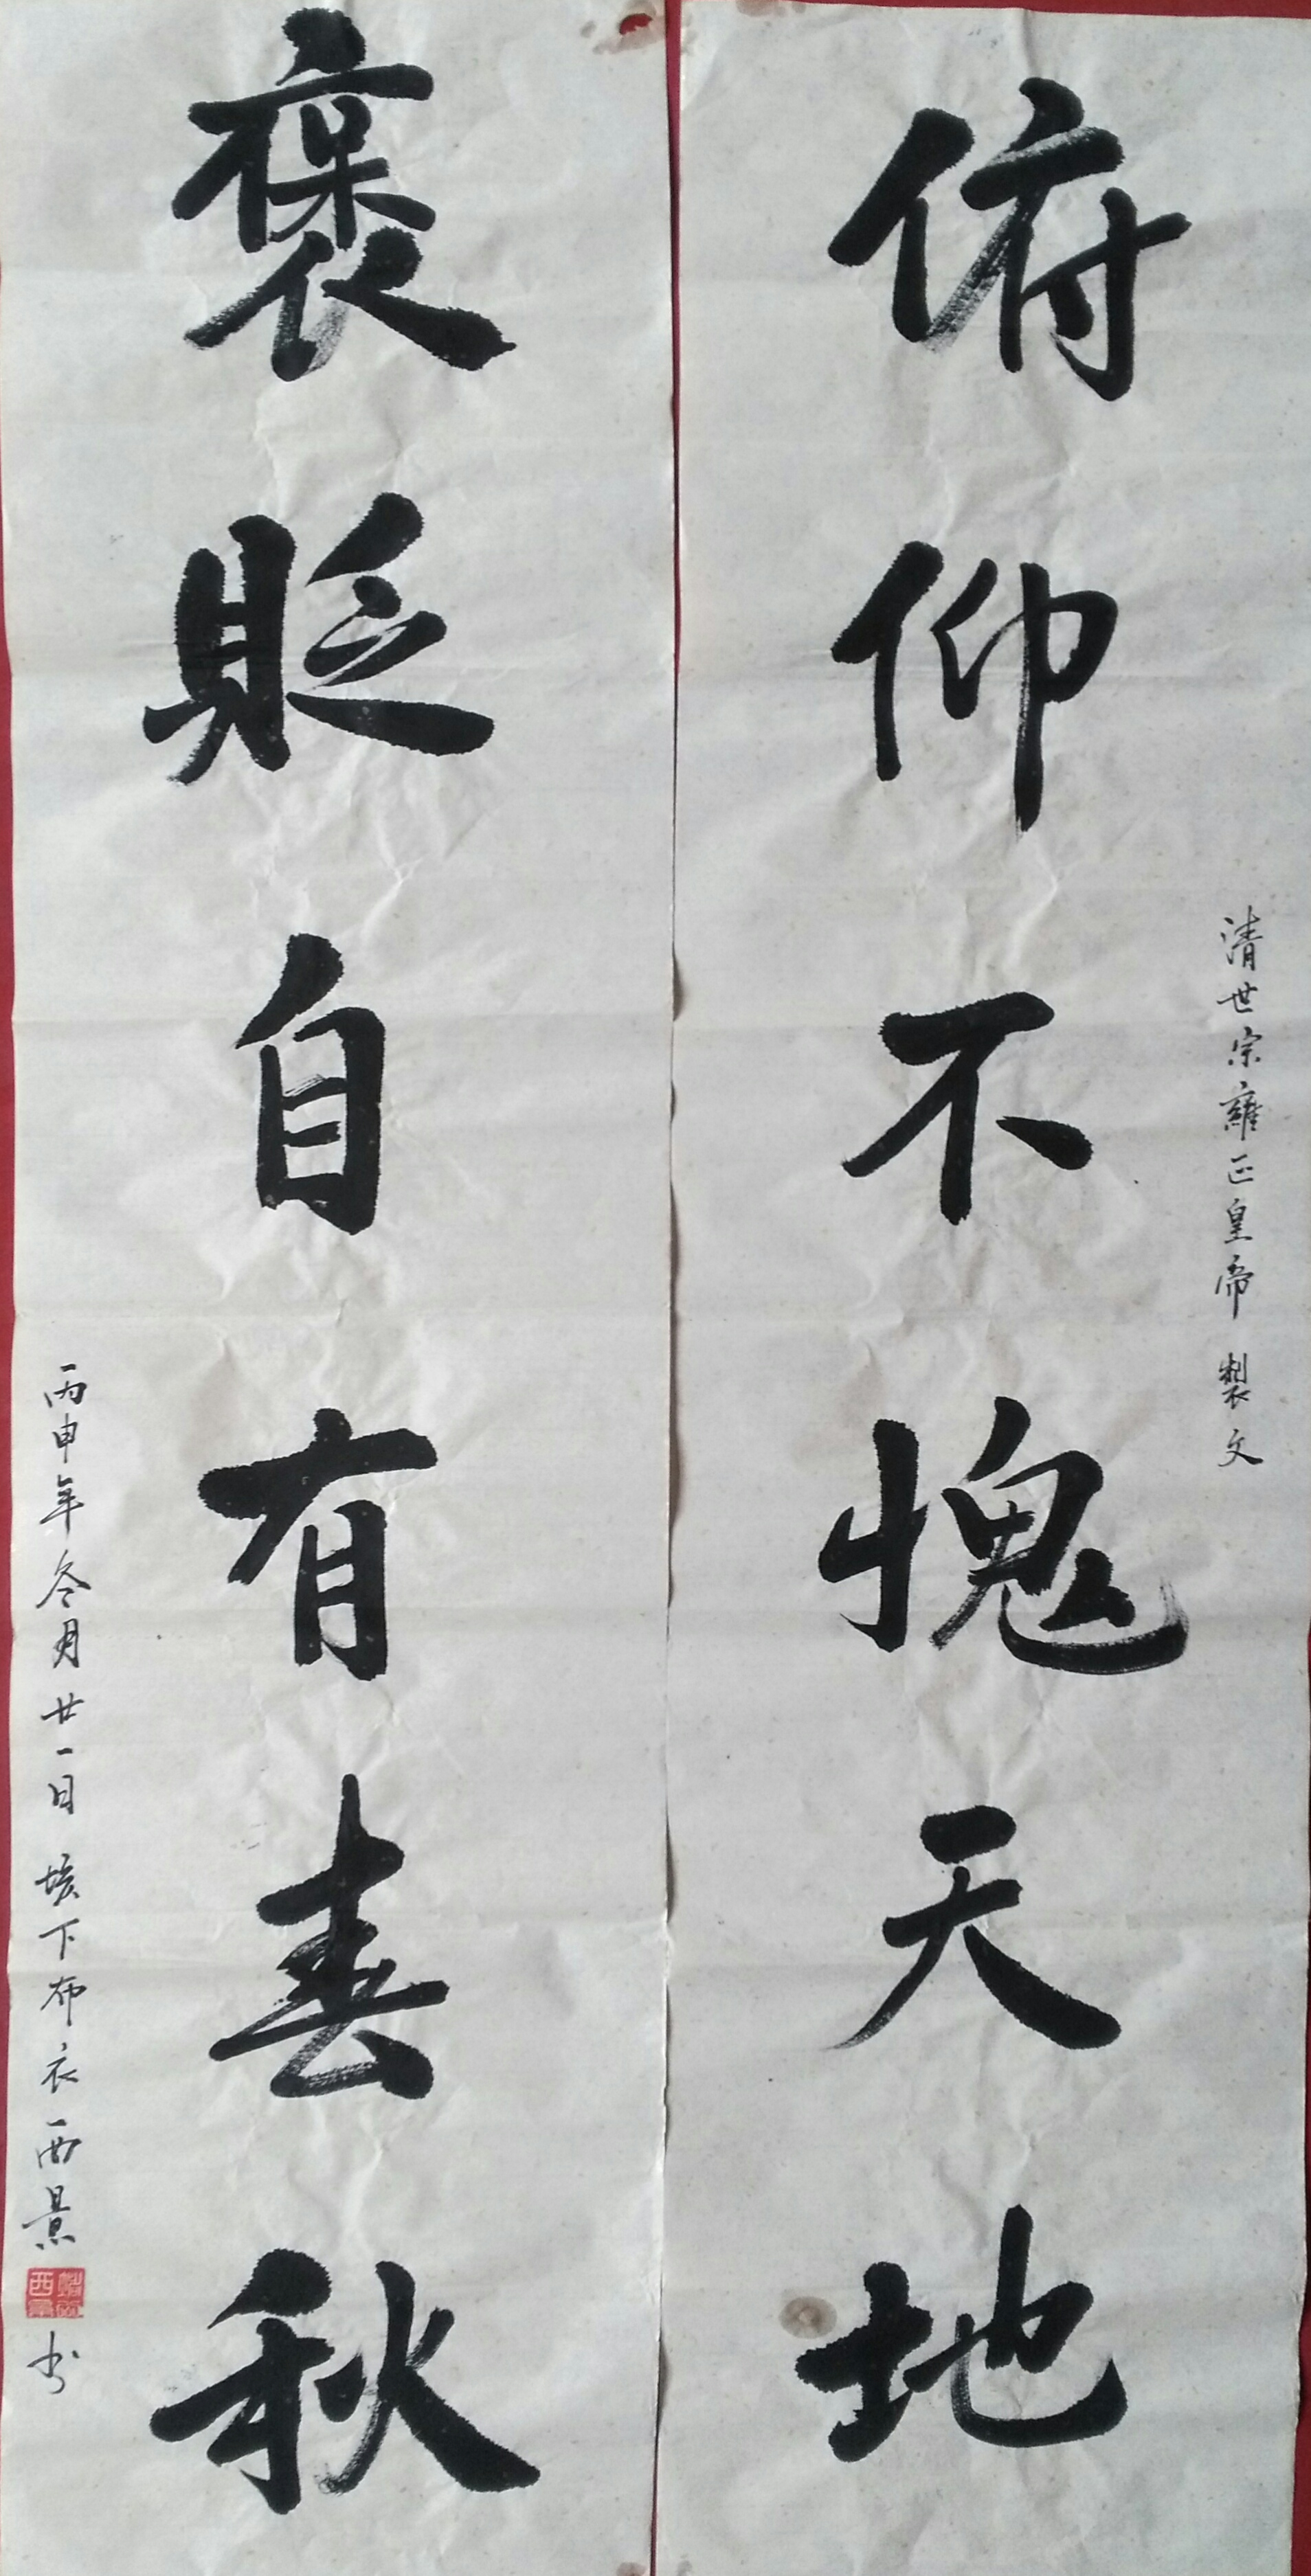 俯仰不愧天地
清世宗雍正皇帝 製文
褒貶自有春秋
丙申年冬月廿一日 垓下布衣西景
书